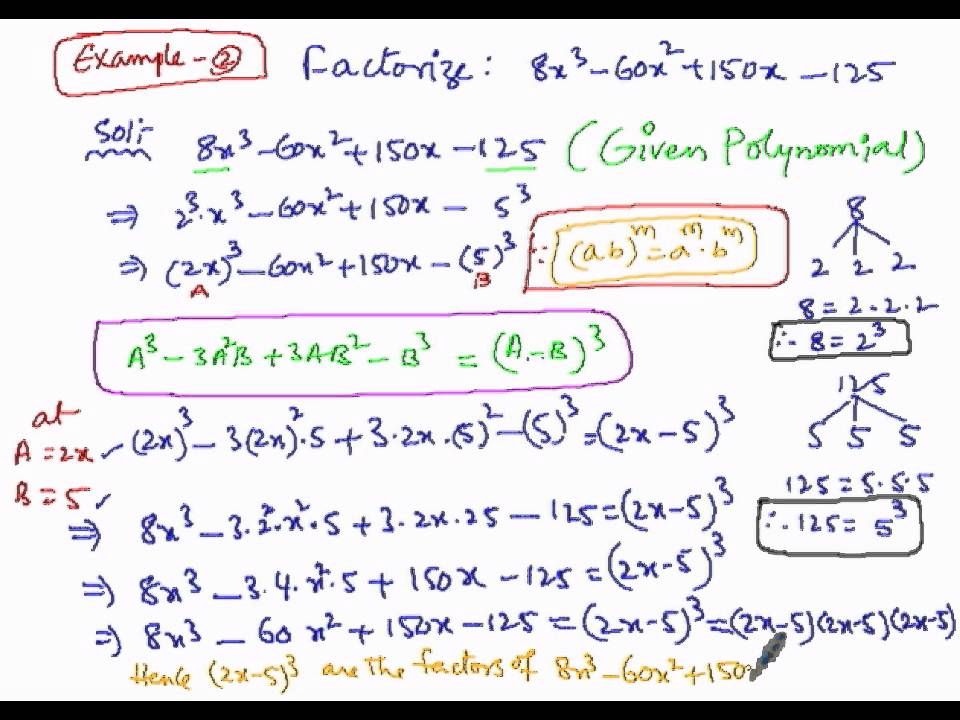 Example - ②
Factorize: 8x³ - 60x² + 150x - 125
Sol:-
8x³ - 60x² + 150x - 125 (Given Polynomial)
⇒ 2³·x³ - 60x² + 150x - 5³
⇒ (2x)³ - 60x² + 150x - (5)³
A B
∵ (ab)^m = a^m · b^m
8
2 2 2
8 = 2·2·2
∴ 8 = 2³
A³ - 3A²B + 3AB² - B³ = (A - B)³
125
5 5 5
125 = 5·5·5
∴ 125 = 5³
at
A = 2x
B = 5
(2x)³ - 3(2x)²·5 + 3·2x·(5)² - (5)³ = (2x - 5)³
⇒ 8x³ - 3·2²·x²·5 + 3·2x·25 - 125 = (2x - 5)³
⇒ 8x³ - 3·4·x²·5 + 150x - 125 = (2x - 5)³
⇒ 8x³ - 60x² + 150x - 125 = (2x - 5)³ = (2x - 5)(2x - 5)(2x - 5)
Hence (2x - 5)³ are the factors of 8x³ - 60x² + 150